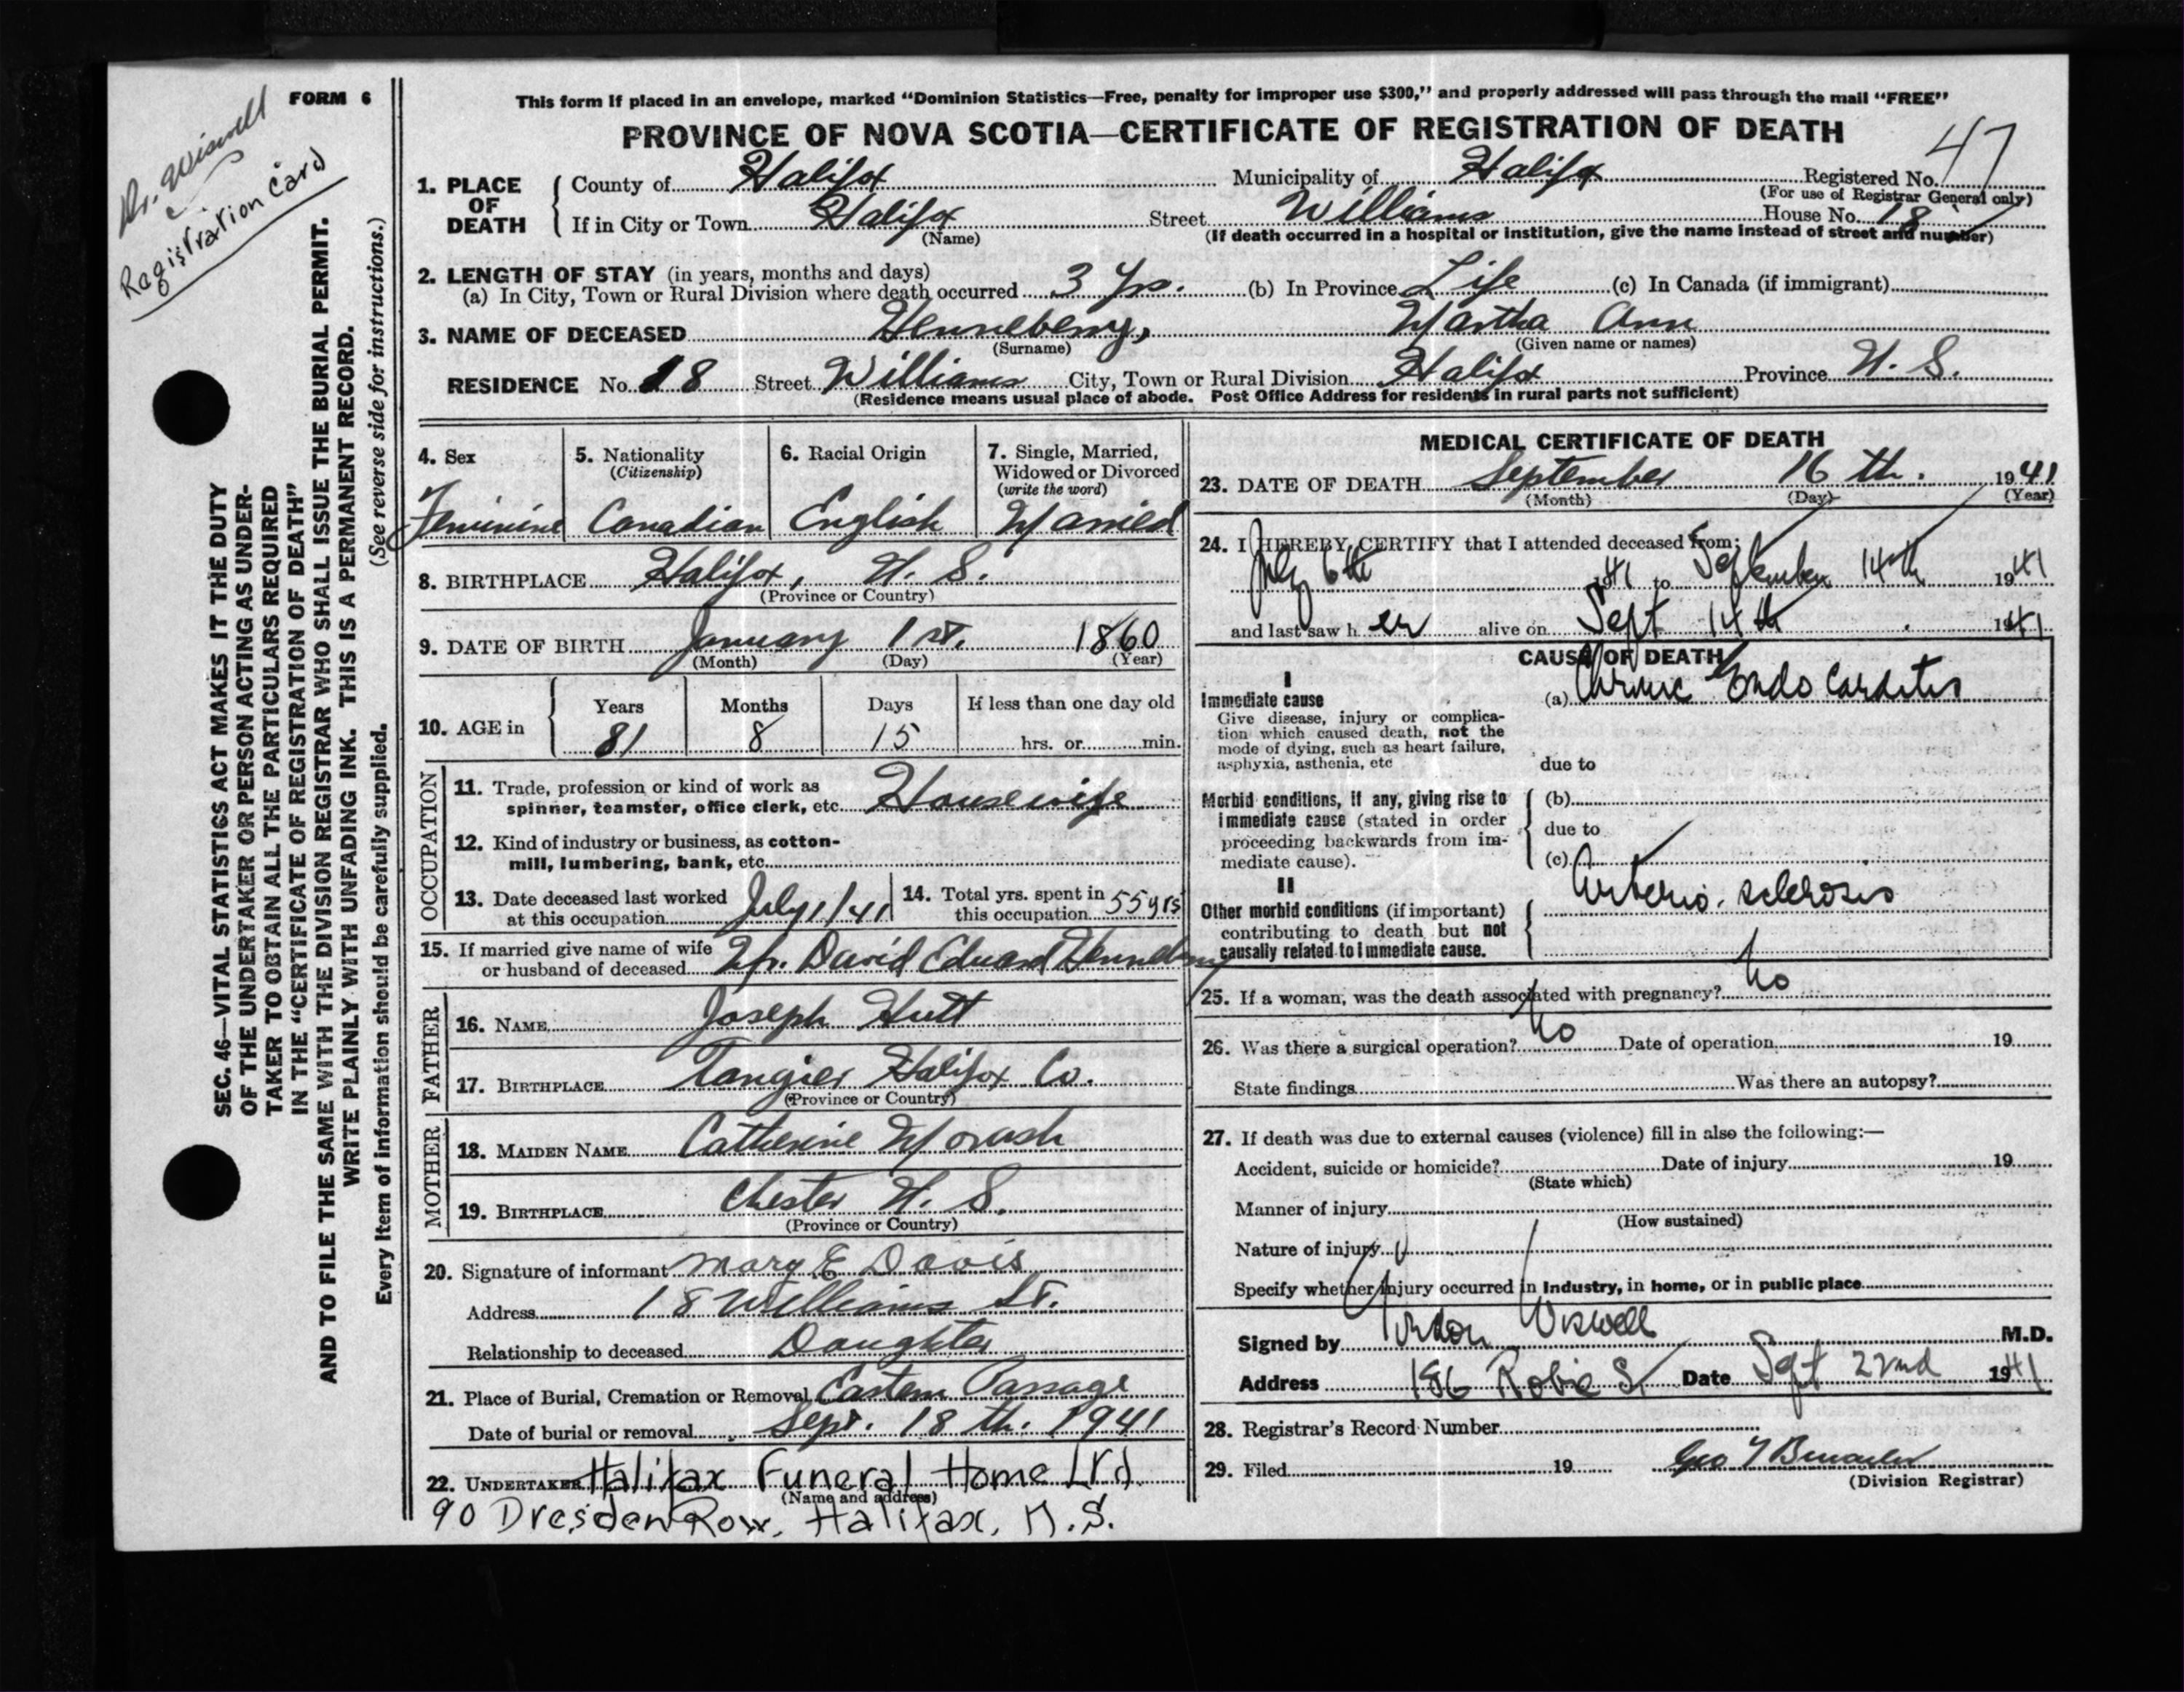 FORM 6
Dr. Wiswell
Registration Card
SEC. 46—VITAL STATISTICS ACT MAKES IT THE DUTY
OF THE UNDERTAKER OR PERSON ACTING AS UNDER-
TAKER TO OBTAIN ALL THE PARTICULARS REQUIRED
IN THE "CERTIFICATE OF REGISTRATION OF DEATH"
AND TO FILE THE SAME WITH THE DIVISION REGISTRAR WHO SHALL ISSUE THE BURIAL PERMIT.
WRITE PLAINLY WITH UNFADING INK. THIS IS A PERMANENT RECORD.
Every item of information should be carefully supplied. (See reverse side for instructions.)
This form if placed in an envelope, marked "Dominion Statistics—Free, penalty for improper use $300," and properly addressed will pass through the mail "FREE"
PROVINCE OF NOVA SCOTIA—CERTIFICATE OF REGISTRATION OF DEATH
1. PLACE OF DEATH County of Halifax Municipality of Halifax Registered No. 47
(For use of Registrar General only)
If in City or Town Halifax Street Williams House No. 18
(Name) (If death occurred in a hospital or institution, give the name instead of street and number)
2. LENGTH OF STAY (in years, months and days)
(a) In City, Town or Rural Division where death occurred 3 Yrs. (b) In Province Life (c) In Canada (if immigrant)
3. NAME OF DECEASED Henneberry, Martha Ann
(Surname) (Given name or names)
RESIDENCE No. 18 Street Williams City, Town or Rural Division Halifax Province N. S.
(Residence means usual place of abode. Post Office Address for residents in rural parts not sufficient)
4. Sex 5. Nationality (Citizenship) 6. Racial Origin 7. Single, Married, Widowed or Divorced (write the word)
Feminine Canadian English Married
8. BIRTHPLACE Halifax, N. S.
(Province or Country)
9. DATE OF BIRTH January 1st. 1860
(Month) (Day) (Year)
10. AGE in Years Months Days If less than one day old
81 8 15 hrs. or min.
OCCUPATION
11. Trade, profession or kind of work as
spinner, teamster, office clerk, etc. Housewife
12. Kind of industry or business, as cotton-
mill, lumbering, bank, etc.
13. Date deceased last worked at this occupation July 1/41 14. Total yrs. spent in this occupation 55 yrs
15. If married give name of wife
or husband of deceased Mr. David Edward Henneberry
FATHER
16. NAME Joseph Hutt
17. BIRTHPLACE Tangier Halifax Co.
(Province or Country)
MOTHER
18. MAIDEN NAME Catherine Morash
19. BIRTHPLACE Chester N. S.
(Province or Country)
20. Signature of informant Mary E Davis
Address 18 Williams St.
Relationship to deceased Daughter
21. Place of Burial, Cremation or Removal Eastern Passage
Date of burial or removal Sept. 18 th. 1941
22. UNDERTAKER Halifax Funeral Home Ltd.
(Name and address)
90 Dresden Row, Halifax, N.S.
MEDICAL CERTIFICATE OF DEATH
23. DATE OF DEATH September 16 th. 1941
(Month) (Day) (Year)
24. I HEREBY CERTIFY that I attended deceased from:
July 6th 1941 to September 14th 1941
and last saw h er alive on Sept 14th 1941
CAUSE OF DEATH
I
Immediate cause (a) Chronic Endo Carditis
Give disease, injury or complica-
tion which caused death, not the
mode of dying, such as heart failure,
asphyxia, asthenia, etc due to
Morbid conditions, if any, giving rise to (b)
immediate cause (stated in order due to
proceeding backwards from im-
mediate cause). (c)
II
Other morbid conditions (if important) Arterio. sclerosis
contributing to death but not
causally related to immediate cause.
25. If a woman, was the death associated with pregnancy? No
26. Was there a surgical operation? No Date of operation 19
State findings Was there an autopsy?
27. If death was due to external causes (violence) fill in also the following:—
Accident, suicide or homicide? Date of injury 19
(State which)
Manner of injury
(How sustained)
Nature of injury
Specify whether injury occurred in industry, in home, or in public place
Signed by Gordon Wiswell M.D.
Address 186 Robie St Date Sept 22nd 1941
28. Registrar's Record Number
29. Filed 19 Geo
(Division Registrar)